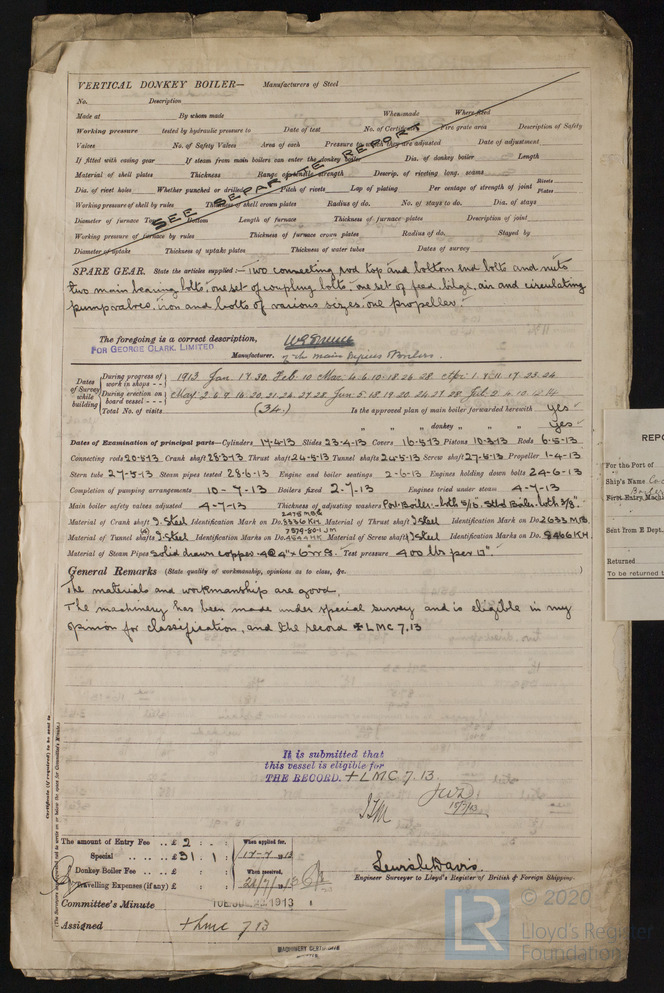 VERTICAL DONKEY BOILER— Manufacturers of Steel
No. Description
Made at By whom made When made Where fixed
Working pressure tested by hydraulic pressure to Date of test No. of Certificate Fire grate area Description of Safety
Valves No. of Safety Valves Area of each Pressure to which they are adjusted Date of adjustment
If fitted with easing gear If steam from main boilers can enter the donkey boiler Dia. of donkey boiler Length
Material of shell plates Thickness Range of tensile strength Descrip. of riveting long. seams
Dia. of rivet holes Whether punched or drilled Pitch of rivets Lap of plating Per centage of strength of joint Rivets Plates
Working pressure of shell by rules Thickness of shell crown plates Radius of do. No. of stays to do. Dia. of stays
Diameter of furnace Top Bottom Length of furnace Thickness of furnace plates Description of joint
Working pressure of furnace by rules Thickness of furnace crown plates Radius of do. Stayed by
Diameter of uptake Thickness of uptake plates Thickness of water tubes Dates of survey
SEE SEPARATE REPORT
SPARE GEAR. State the articles supplied:— Two connecting rod top and bottom end bolts and nuts
two main bearing bolts, one set of coupling bolts, one set of feed, bilge, air and circulating
pump valves, iron and bolts of various sizes, one propeller.
The foregoing is a correct description,
FOR GEORGE CLARK, LIMITED
Manufacturer. of the main Engines & Boilers.
Dates of Survey while building
During progress of work in shops - - 1913 Jan 17.30. Feb 10 Mar 4.6.10.18.26.28. Apr 1.9.11.17.23.24
During erection on board vessel - - May 2.6.9.16.20.21.24.27.28 Jun 5.18.19.20.24.27.28 Jul 2.4.10.12.14
Total No. of visits (34.) Is the approved plan of main boiler forwarded herewith yes
" " " donkey " " yes
Dates of Examination of principal parts—Cylinders 17-4-13 Slides 23-4-13 Covers 16-5-13 Pistons 10-3-13 Rods 6-5-13
Connecting rods 20-5-13 Crank shaft 28-3-13 Thrust shaft 24-5-13 Tunnel shafts 24-5-13 Screw shaft 27-5-13 Propeller 1-4-13
Stern tube 27-5-13 Steam pipes tested 28-6-13 Engine and boiler seatings 2-6-13 Engines holding down bolts 24-6-13
Completion of pumping arrangements 10-7-13 Boilers fixed 2-7-13 Engines tried under steam 4-7-13
Main boiler safety valves adjusted 4-7-13 Thickness of adjusting washers Port Boiler- both 5/16" Stbd Boiler both 3/8"
Material of Crank shaft I. Steel Identification Mark on Do. 8336 KH Material of Thrust shaft I Steel Identification Mark on Do. 2633 MB
Material of Tunnel shafts I. Steel Identification Marks on Do. Material of Screw shaft I Steel Identification Marks on Do. 8466 KH
Material of Steam Pipes Solid drawn copper Test pressure 400 lbs per □".
General Remarks (State quality of workmanship, opinions as to class, &c.
The materials and workmanship are good.
The machinery has been made under special survey and is eligible in my
opinion for classification, and the record ✠ LMC 7.13
Certificate (if required) to be sent to
It is submitted that
this vessel is eligible for
THE RECORD. + LMC 7.13.
The amount of Entry Fee .. £ 2 : . : When applied for.
Special .. £ 31 . 1 : 17-7-1913
Donkey Boiler Fee .. £ : : When received.
Travelling Expenses (if any) £ : :
Lewis C Davis
Engineer Surveyor to Lloyd's Register of British & Foreign Shipping.
Committee's Minute TUE. 1913
Assigned + LMC 7 13
MACHINERY CERTIFICATE
REPO
For the Port of
Ship's Name
First Entry
Sent from E Dept.
Returned
To be returned t
© 2020
Lloyd's Register
Foundation
LR